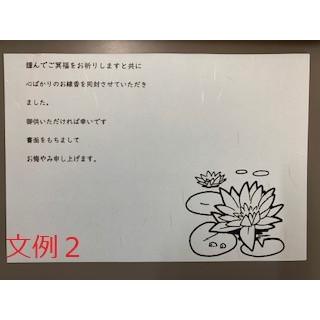 謹んでご冥福をお祈りしますと共に
心ばかりのお線香を同封させていただき
ました。
御供いただければ幸いです
書面をもちまして
お悔やみ申し上げます。
文例２